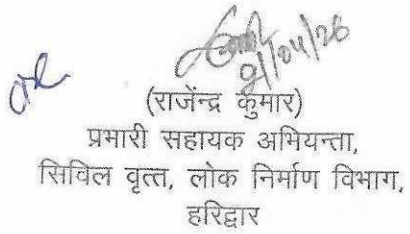 (राजेंन्द्र कुमार)
प्रभारी सहायक अभियन्ता,
सिविल वृत्त, लोक निर्माण विभाग,
हरिद्वार